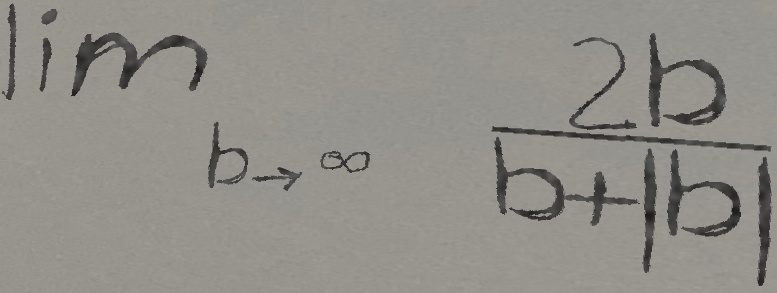 lim b→∞ 2b / b+|b|